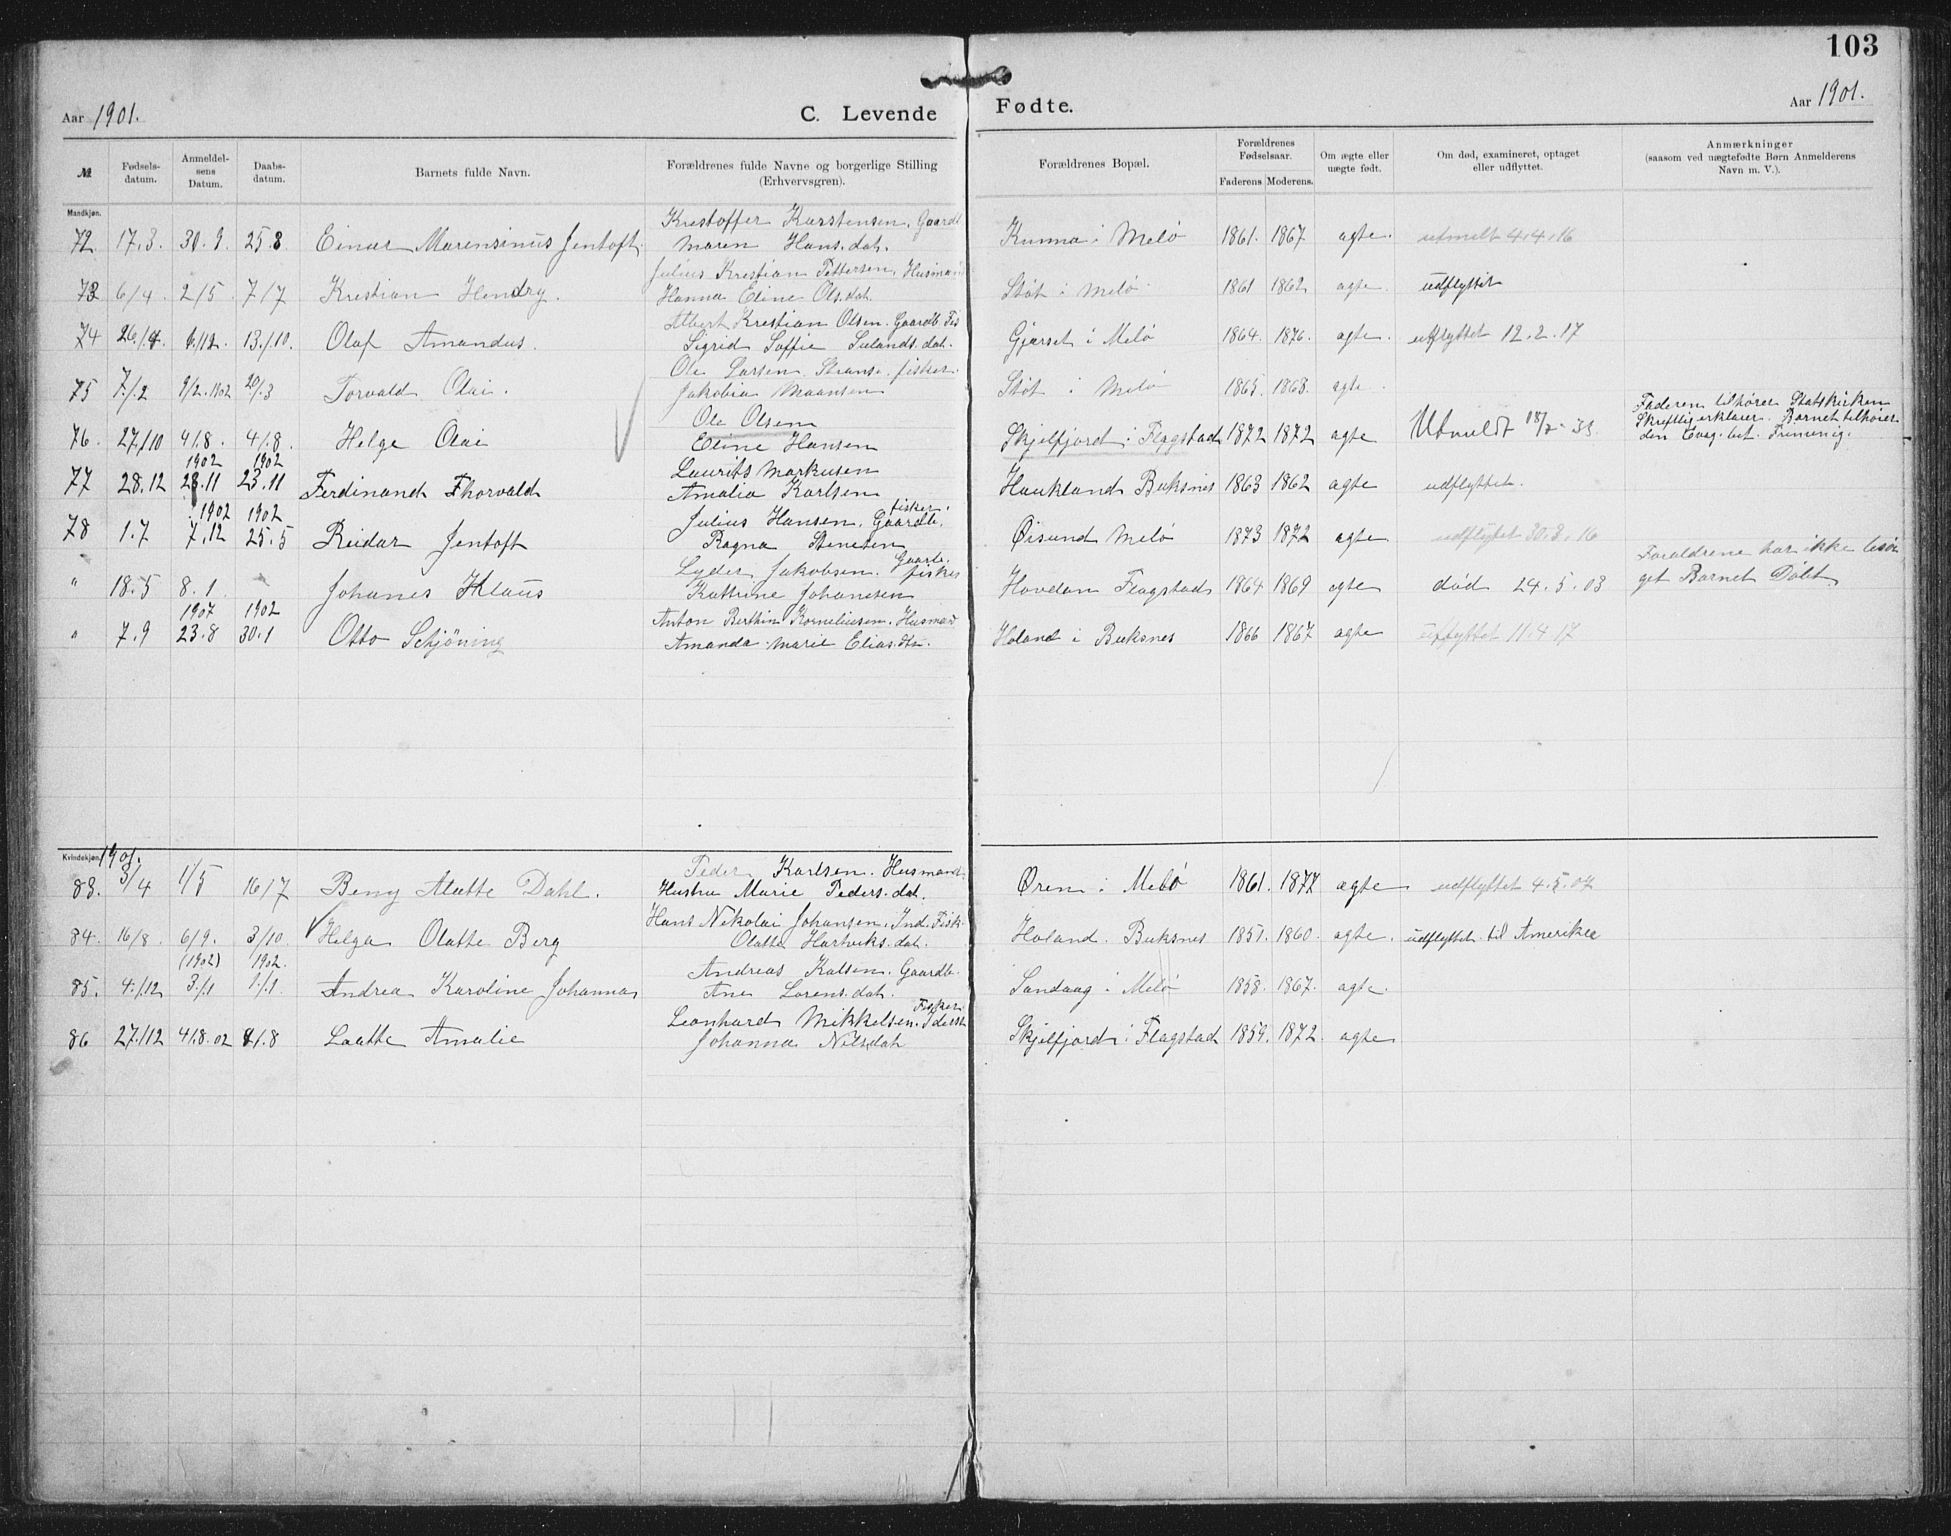 103
Aar 1901.
C. Levende Fødte.
Aar 1901.
№ Fødsels-datum. Anmeldel-sens Datum. Daabs-datum. Barnets fulde Navn. Forældrenes fulde Navne og borgerlige Stilling (Erhvervsgren). Forældrenes Bopæl. Forældrenes Fødselsaar. Faderens Moderens. Om ægte eller uægte født. Om død, examineret, optaget eller udflyttet. Anmærkninger (saasom ved uægtefødte Børn Anmelderens Navn m. V.).
Mandkjøn.
Krestoffer Karstensen, Gaardb
72 17.3. 30.9 25.8 Einar Marensinus Jentoft. Maren Hans.dat. Kunna i Melø 1861. 1867 agte. utmelt 4.4.16
Julius Krestian Pettersen, Husmand
73 6/4. 2/5. 7/7 Krestian Hendry. Hanna Eline Ols.dat. Støt i Melø. 1861 1862 agte. udflyttet
Albert Krestian Olsen. Gaardb. Fis
74 26/.9. 6/12. 13./10. Olaf Amandus. Sigrid Soffie Sulands.dat. Gjerset i Melø 1864. 1876. agte. utflyttet 12.2.17
Ole Larsen. fisker.
75 7./2 9/2.1902 20/3 Torvald Olai. Jakobia Maansen Støt i Melø 1865. 1868. agte.
Ole Olsen
76. 27/10 4/8. 4/.8. Helge Olai Eline Hansen Skjelfjord i Flagstad 1872 1872 agte Utmeldt 18/2-33 Faderen tilhører Statskirken
Skriftlig erklærer. Barnet tilhører
den Evag. lut. Frimenig.
1902 1902 Laurits Markusen
77 28.12 28.11 23.11 Ferdinand Thorvald Amalia Karlsen Haukland Buksnes 1863 1862 agte udflyttet.
1902 1902 Julius Hansen. Gaardb. fisker.
78 1.7 7.12 25.5 Reidar Jentoft Ragna Stensen Øisund Melø 1873 1872 agte udflyttet 30.8.16
Lyder Jakobsen. Gaarb. fisker
" 18.5 8.1 Johanes Klaus Kattrine Johansen Hovdan Flagstad 1864 1869 agte død 24.5.03 Foraldrene har ikke besør
get Barnet Døbt
1907 1902 Anton Berthin Korneliusen. Husmand
" 7.9 23.8 30.1 Otto Schjøning Amanda Marie Elias.dtr. Holand i Buksnes 1866 1867 agte utflyttet 11.4.17
Kvindekjøn. 1901.
Peder Karlsen. Husmand.
83. 3/4 1/5 16/7 Beny Alette Dahl. Hustru Marie Peders.dat. Øren i Melø 1861. 1877 agte udflyttet 4.5.07
Hans Nikolai Johansen. Ind. Fisk.
84. 16/8. 6/9. 3/10. Helga Olatte Berg Olatte Hartviks.dat. Holand. Buksnes 1857. 1860. agte. udflyttet til Amerika
(1902) 1902. Andreas Kalsen. Gaardb.
85. 4./12 3./1 1./1. Andrea Karoline Johanna Ane Lorens.dat. Sandaag i Melø 1858. 1867. agte.
Leonhard Mikkelsen. Fisker.
86 27./12 4/.8.02 4/.8 Laatte Amalie Johanna Nilsdat Skjelfjord i Flagstad 1859. 1872. agte